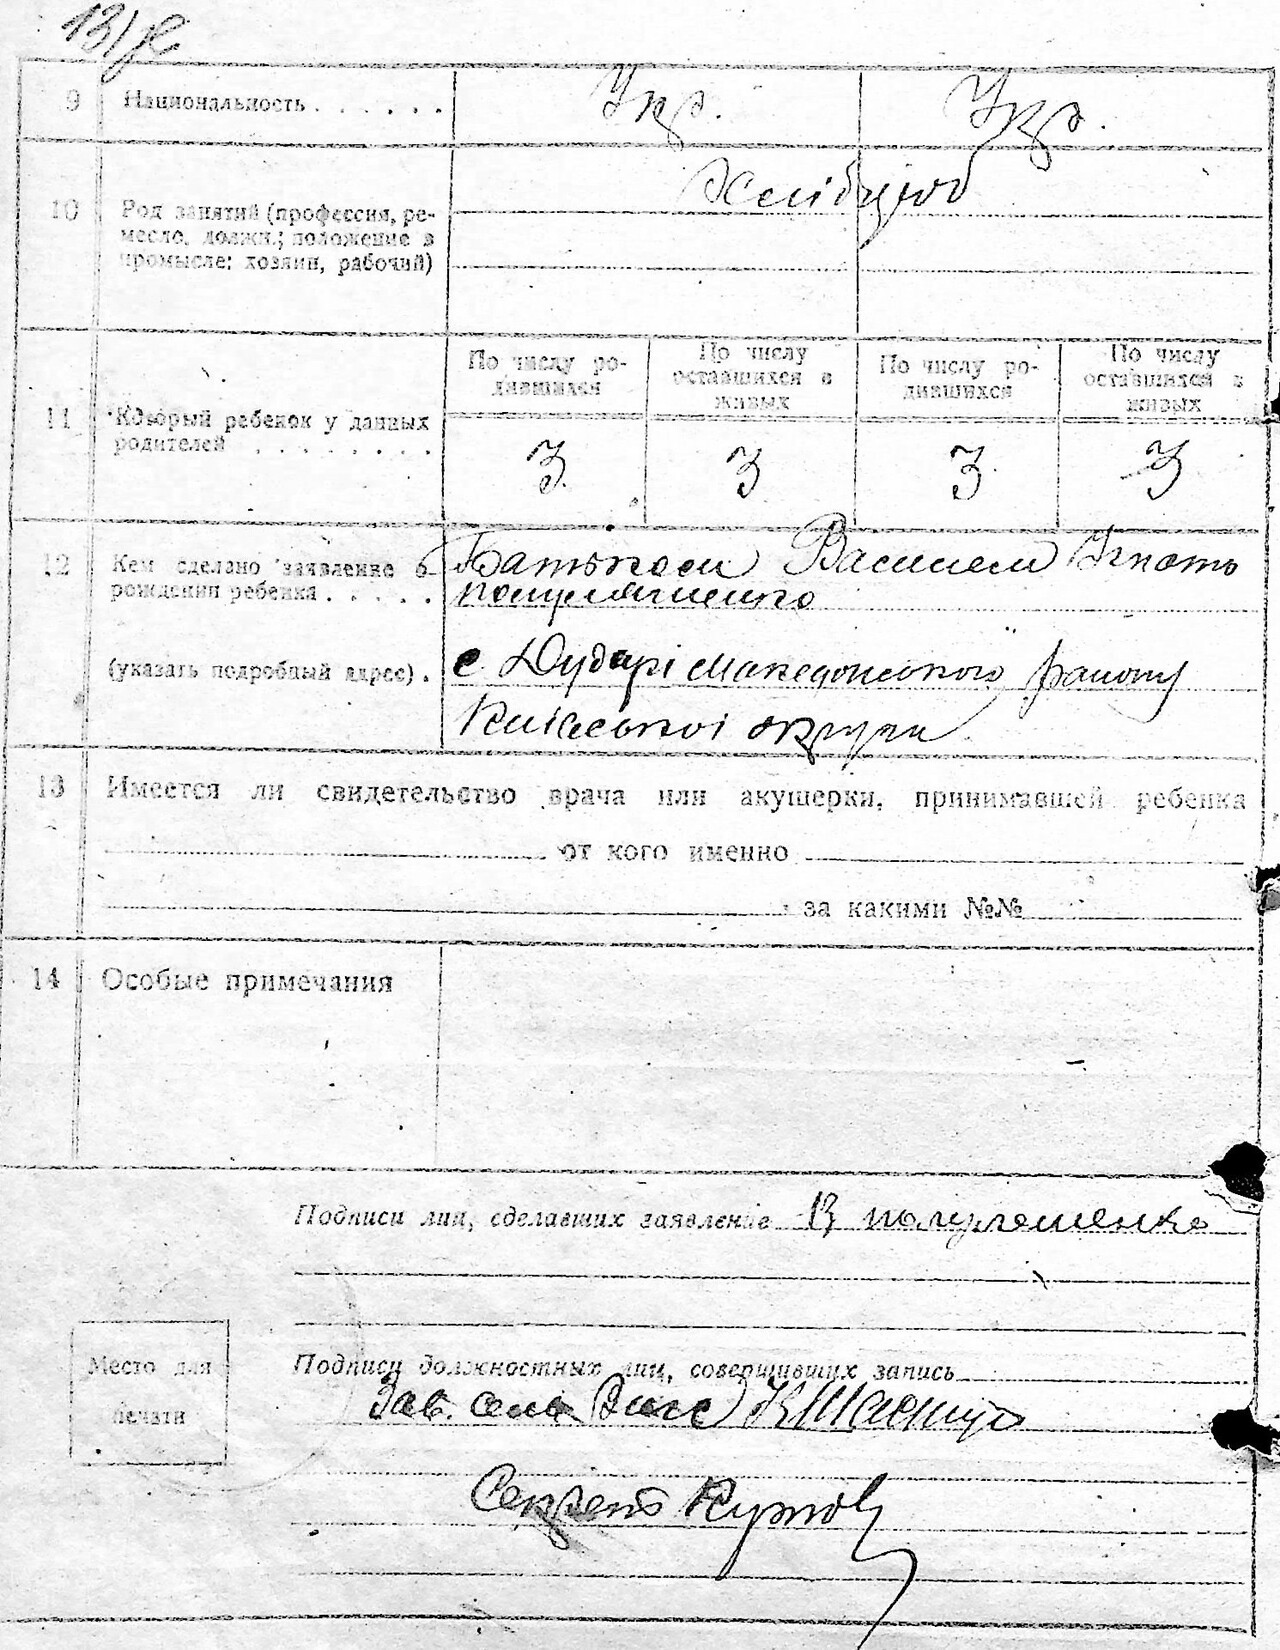 13)
9 Национальность . . . . . . Укр. Укр.
Хлібороб
10 Род занятий (профессия, ре-
месло, должн.; положение в
промысле: хозяин, рабочий)
По числу ро-
дившихся
По числу
оставшихся в
живых
По числу ро-
дившихся
По числу
оставшихся в
живых
11 Который ребенок у данных
родителей . . . . . . . .
3 3 3 3
12 Кем сделано заявление о
рождении ребенка . . . . .
Батьком Василем
(указать подробный адрес) .
с. Дударі Македонського району
Київської округи
13 Имеется ли свидетельство врача или акушерки, принимавшей ребенка
от кого именно
за какими №№
14 Особые примечания
Подписи лиц, сделавших заявление В
Место для
печати
Подписи должностных лиц, совершивших запись
Зав.
Секрет